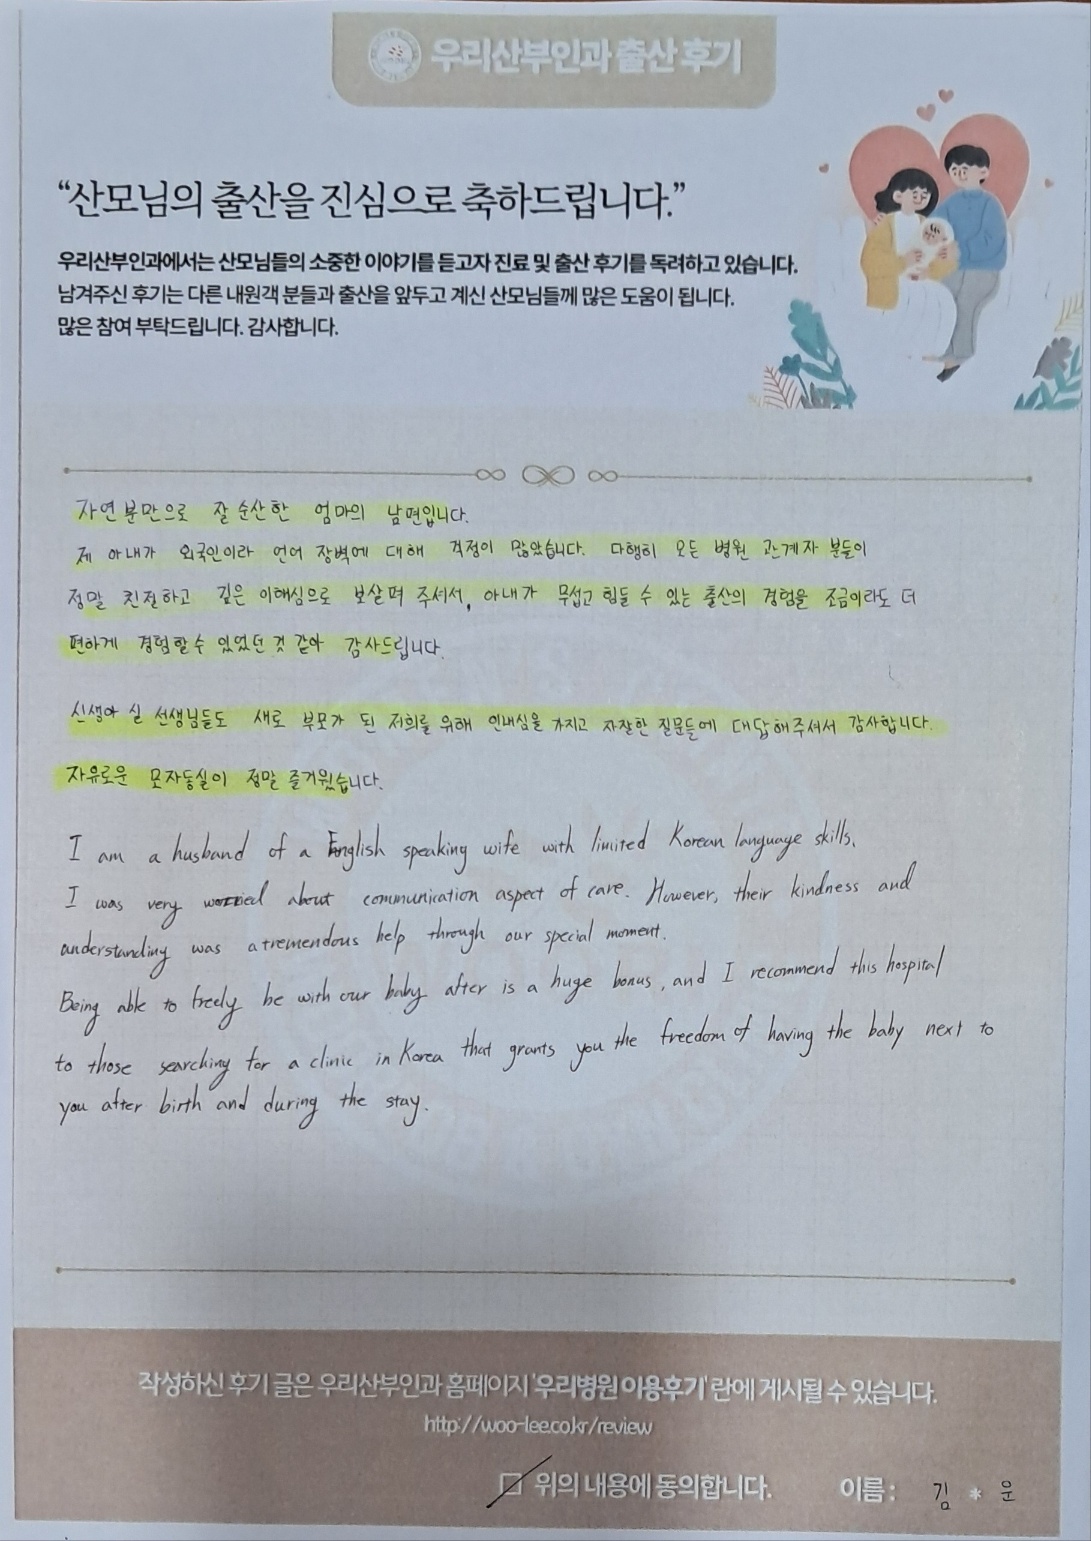 우리산부인과 출산 후기
“산모님의 출산을 진심으로 축하드립니다.”
우리산부인과에서는 산모님들의 소중한 이야기를 듣고자 진료 및 출산 후기를 독려하고 있습니다.
남겨주신 후기는 다른 내원객 분들과 출산을 앞두고 계신 산모님들께 많은 도움이 됩니다.
많은 참여 부탁드립니다. 감사합니다.
자연분만으로 잘 순산한 엄마의 남편입니다.
제 아내가 외국인이라 언어 장벽에 대해 걱정이 많았습니다. 다행히 모든 병원 관계자 분들이
정말 친절하고 깊은 이해심으로 보살펴 주셔서, 아내가 무섭고 힘들 수 있는 출산의 경험을 조금이라도 더
편하게 경험할 수 있었던 것 같아 감사드립니다.
신생아 실 선생님들도 새로 부모가 된 저희를 위해 인내심을 가지고 자잘한 질문들에 대답해주셔서 감사합니다.
자유로운 모자동실이 정말 즐거웠습니다.
I am a husband of a English speaking wife with limited Korean language skills.
I was very worried about communication aspect of care. However, their kindness and
understanding was a tremendous help through our special moment.
Being able to freely be with our baby after is a huge bonus, and I recommend this hospital
to those searching for a clinic in Korea that grants you the freedom of having the baby next to
you after birth and during the stay.
작성하신 후기 글은 우리산부인과 홈페이지 '우리병원 이용후기' 란에 게시될 수 있습니다.
http://woo-lee.co.kr/review
위의 내용에 동의합니다. 이름 : 김 * 운